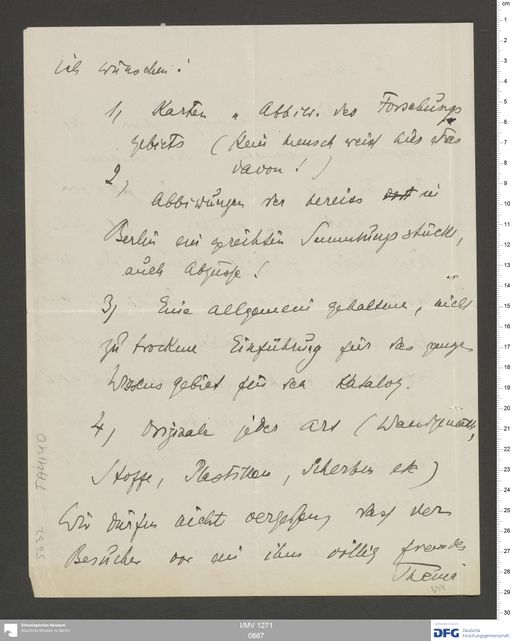 Ich wünsche:
1, Karten u Abbild. des Forschungs
gebiets (Kein Mensch weiss hier etwas
davon!)
2,
Abbildungen der bereits in
Berlin ein gereihten Sammlungsstücke,
auch Abgüsse!
3, Eine allgemein gehaltene, nicht
zu trockene Einführung für das ganze
Wissensgebiet für den Katalog.
4, Originale jeder Art (Wandgemälde,
Stoffe, Plastiken, Scherben etc)
Wir dürfen nicht vergessen, dass der
Besucher vor ein ihm völlig fremdes
Thema
TA4140
5637
Ethnologisches Museum
Staatliche Museen zu Berlin
I/MV 1271
0667
DFG Deutsche
Forschungsgemeinschaft